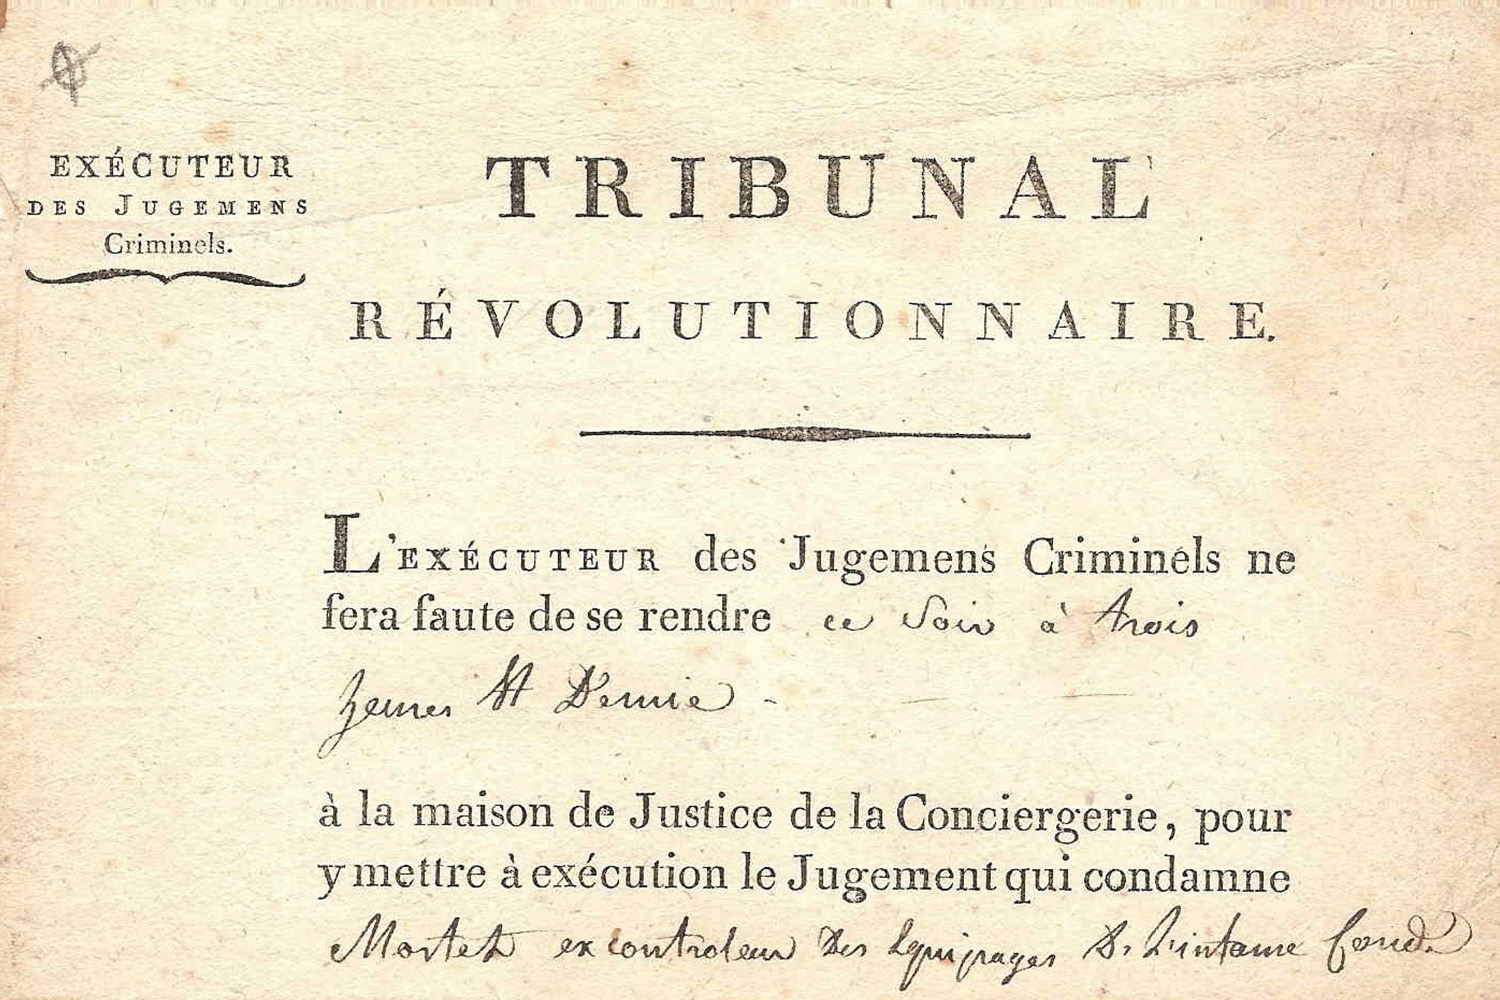 EXÉCUTEUR
DES JUGEMENS
Criminels.
TRIBUNAL
RÉVOLUTIONNAIRE.
L'EXÉCUTEUR des Jugemens Criminels ne
fera faute de se rendre ce Soir à trois
heures et Demie -
à la maison de Justice de la Conciergerie, pour
y mettre à exécution le Jugement qui condamne
ex controleur Des Equipages De